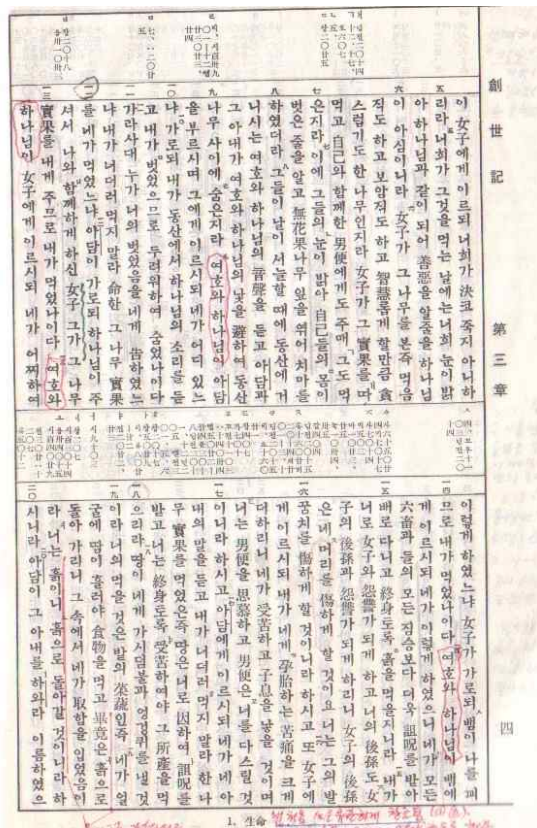 創世記
第三章
四
이 女子에게 이르되 너희가 決코 죽지 아니하
리라 너희가 그것을 먹는 날에는 너희 눈이 밝
아 하나님과 같이 되어 善惡을 알줄을 하나님
六 이 아심이니라 女子가 그 나무를 본즉 먹음
직도 하고 보암직도 하고 智慧롭게 할만큼 貪
스럽기도 한 나무인지라 女子가 그 實果를 따
먹고 自己와 함께한 男便에게도 주매 그도 먹
七 은지라 이에 그들의 눈이 밝아 自己들의 몸이
벗은 줄을 알고 無花果나무 잎을 엮어 치마를
八 하였더라 그들이 날이 서늘할 때에 동산에 거
니시는 여호와 하나님의 音聲을 듣고 아담과
그 아내가 여호와 하나님의 낯을 避하여 동산
九 나무 사이에 숨은지라 여호와 하나님이 아담
을 부르시며 그에게 이르시되 네가 어디 있느
一〇 냐 가로되 내가 동산에서 하나님의 소리를 듣
고 내가 벗었으므로 두려워하여 숨었나이다
一一 가라사대 누가 너의 벗었음을 네게 告하였느
냐 내가 너더러 먹지 말라 命한 그 나무 實果
一二 를 네가 먹었느냐 아담이 가로되 하나님이 주
셔서 나와 함께하게 하신 女子 그가 그 나무
一三 實果를 내게 주므로 내가 먹었나이다 여호와
하나님이 女子에게 이르시되 네가 어찌하여
이렇게 하였느냐 女子가 가로되 뱀이 나를 꾀
一四 므로 내가 먹었나이다 여호와 하나님이 뱀에
게 이르시되 네가 이렇게 하였으니 네가 모든
六畜과 들의 모든 짐승보다 더욱 詛呪를 받아
一五 배로 다니고 終身토록 흙을 먹을지니라 내가
너로 女子와 怨讐가 되게하고 너의 後孫도 女
子의 後孫과 怨讐가 되게 하리니 女子의 後孫
은 네 머리를 傷하게 할 것이요 너는 그의 발
一六 꿈치를 傷하게 할 것이니라 하시고 또 女子에
게 이르시되 내가 네게 孕胎하는 苦痛을 크게
더하리니 네가 受苦하고 子息을 낳을 것이며
너는 男便을 思慕하고 男便은 너를 다스릴 것
一七 이니라 하시고 아담에게 이르시되 네가 네 아
내의 말을 듣고 내가 너더러 먹지 말라 한 나
무 實果를 먹었은즉 땅은 너로 因하여 詛呪를
받고 너는 終身토록 受苦하여야 그 所産을 먹
一八 으리라 땅이 네게 가시덤불과 엉겅퀴를 낼 것
一九 이라 너의 먹을 것은 밭의 菜蔬인즉 네가 얼
굴에 땀이 흘러야 食物을 먹고 畢竟은 흙으로
돌아 가리니 그 속에서 네가 取함을 입었음이
라 너는 흙이니 흙으로 돌아갈 것이니라 하
二〇 시니라 아담이 그 아내를 하와라 이름하였으
1. 生命